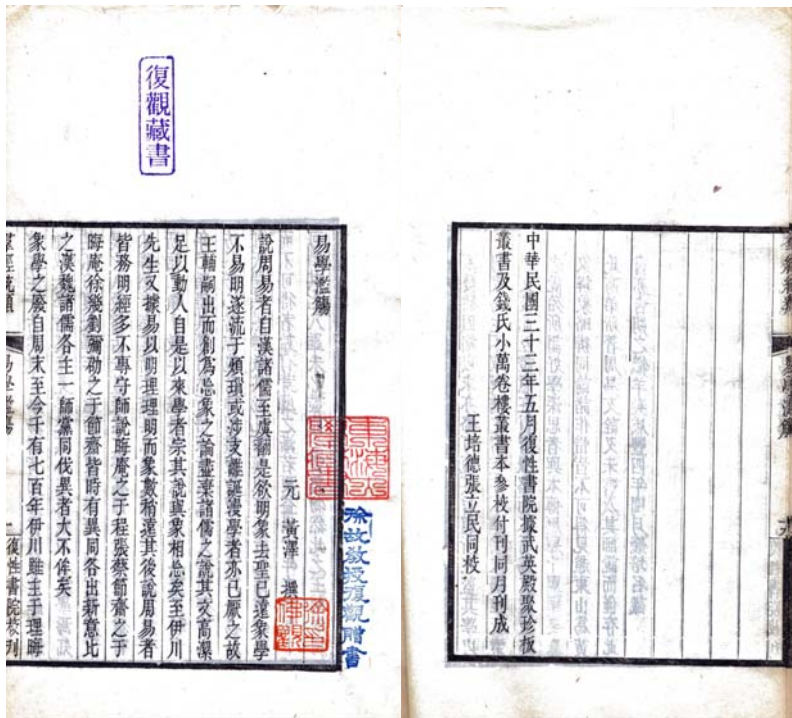 中華民國三十三年五月復性書院據武英殿聚珍板
叢書及錢氏小萬卷樓叢書本參校付刊同月刊成
王培德張立民同校
復觀藏書
徐故教授復觀贈書
徐印佛觀
易學濫觴
元 黃澤 撰
說周易者自漢諸儒至虞翻是欲明象去聖已遠象學
不易明遂流于煩瑣或涉支離誕漫學者亦已厭之故
王輔嗣出而創爲忘象之論盡棄諸儒之說其文高潔
足以動人自是以來學者宗其說與象相忘矣至伊川
先生又據易以明理理明而象數稍遠其後說周易者
皆務明經多不專守師說晦庵之于程張蔡節齋之于
晦庵徐幾劉彌劭之于節齋皆時有異同各出新意比
之漢魏諸儒各主一師黨同伐異者大不侔矣
象學之廢自周末至今千有七百年伊川雖主于理晦
羣經統類 易學濫觴 一 復性書院校刊